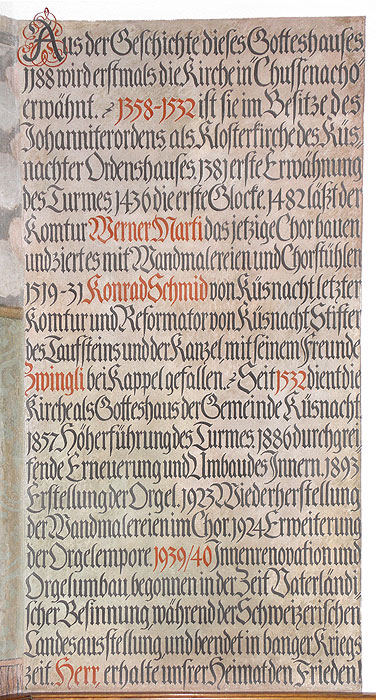 Aus der Geschichte dieses Gotteshauses.
1188 wird erstmals die Kirche in Chussenacho
erwähnt. 1358-1532 ist sie im Besitze des
Johanniterordens als Klosterkirche des Küs-
nachter Ordenshauses. 1381 erste Erwähnung
des Turmes, 1436 die erste Glocke. 1482 läßt der
Komtur Werner Marti das jetzige Chor bauen
und ziert es mit Wandmalereien und Chorstühlen
1519-31 Konrad Schmid von Küsnacht letzter
Komtur und Reformator von Küsnacht, Stifter
des Taufsteins und der Kanzel, mit seinem Freunde
Zwingli bei Kappel gefallen. Seit 1532 dient die
Kirche als Gotteshaus der Gemeinde Küsnacht.
1857 Höherführung des Turmes, 1886 durchgrei-
fende Erneuerung und Umbau des Innern. 1893
Erstellung der Orgel. 1923 Wiederherstellung
der Wandmalereien im Chor, 1924 Erweiterung
der Orgelempore. 1939/40 Innenrenovation und
Orgelumbau, begonnen in der Zeit Vaterländi-
scher Besinnung während der Schweizerischen
Landesausstellung, und beendet in banger Kriegs
zeit. Herr erhalte unsrer Heimat den Frieden.